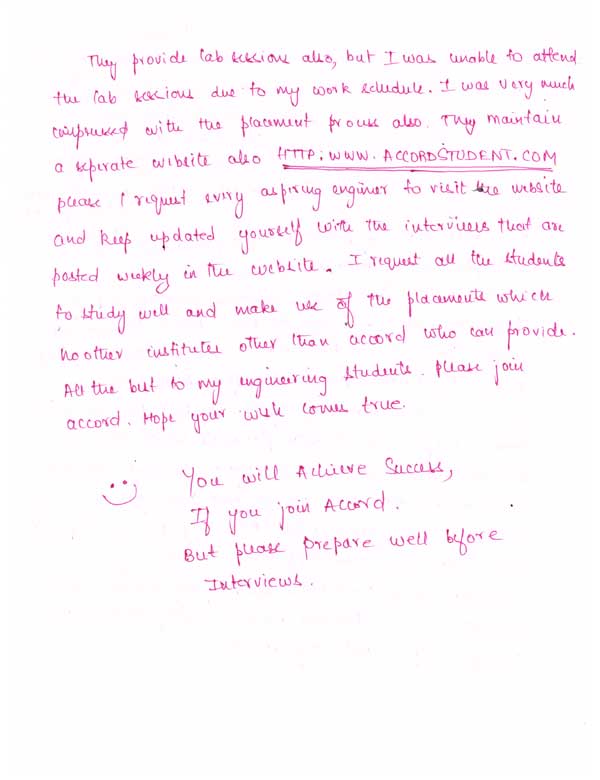 They provide lab sessions also, but I was unable to attend
the lab sessions due to my work schedule. I was very much
impressed with the placement process also. They maintain
a seperate website also HTTP:WWW.ACCORDSTUDENT.COM
please I request every aspiring enginer to visit the website
and keep updated yourself with the interviews that are
posted weekly in the website. I request all the students
to study well and make use of the placements which
no other institutes other than accord who can provide.
All the best to my engineering students. please join
accord. Hope your wish comes true.
You will Achieve Success,
If you join Accord.
But please prepare well before
Interviews.